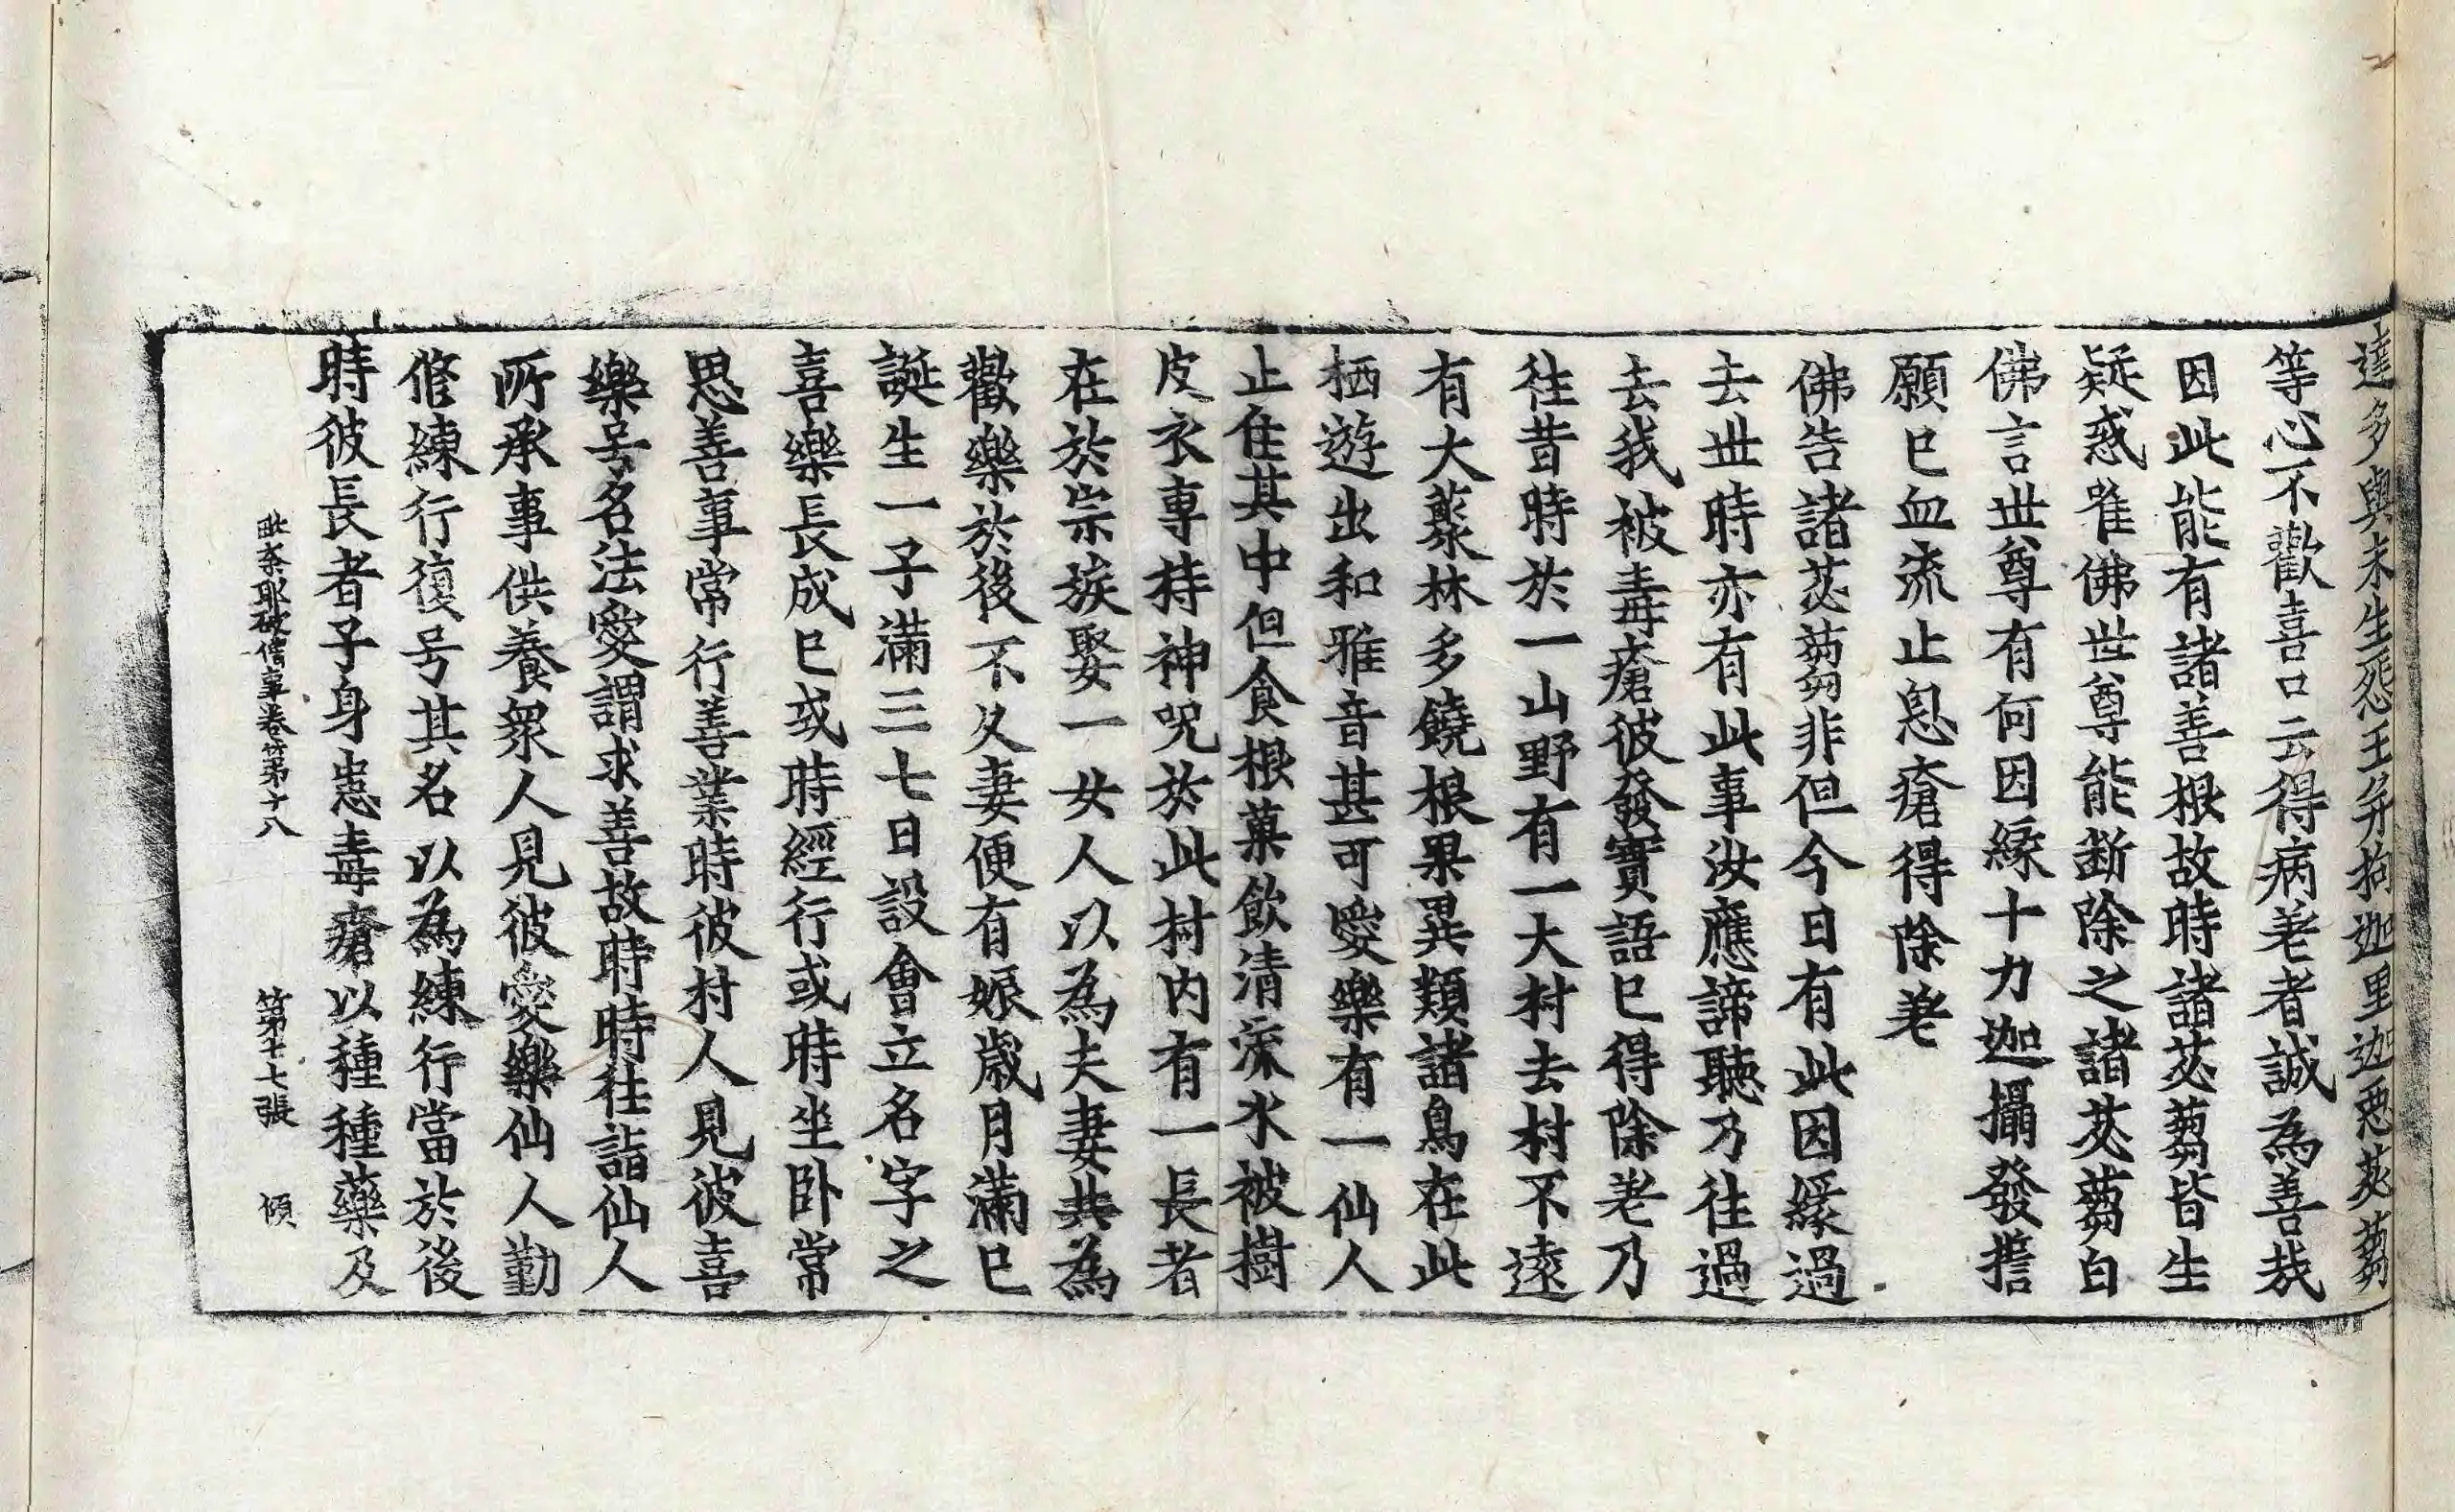 達多與未生怨王并拘迦里迦惡苾蒭
等心不歡喜口云得病差者誠為善哉
因此能有諸善根故時諸苾蒭皆生
疑惑唯佛世尊能断除之諸苾蒭白
佛言世尊有何因緣十力迦攝發誓
願已血流止息瘡得除差
佛告諸苾蒭非但今日有此因緣過
去世時亦有此事汝應諦聽乃往過
去我被毒瘡彼發實語已得除差乃
往昔時於一山野有一大村去村不遠
有大藂林多饒根果異類諸鳥在此
栖遊出和雅音甚可愛樂有一仙人
止住其中但食根菓飲清流水被樹
皮衣專持神呪於此村内有一長者
在於宗族娶一女人以為夫妻共為
歡樂於後不久妻便有娠歳月滿已
誕生一子滿三七日設會立名字之
喜樂長成已或時經行或時坐卧常
思善事常行善業時彼村人見彼喜
樂号名法愛謂求善故時時往詣仙人
所承事供養衆人見彼愛樂仙人勤
修練行復号其名以為練行當於後
時彼長者子身患毒瘡以種種藥及
毗奈耶破僧事卷第十八 第十七張 傾